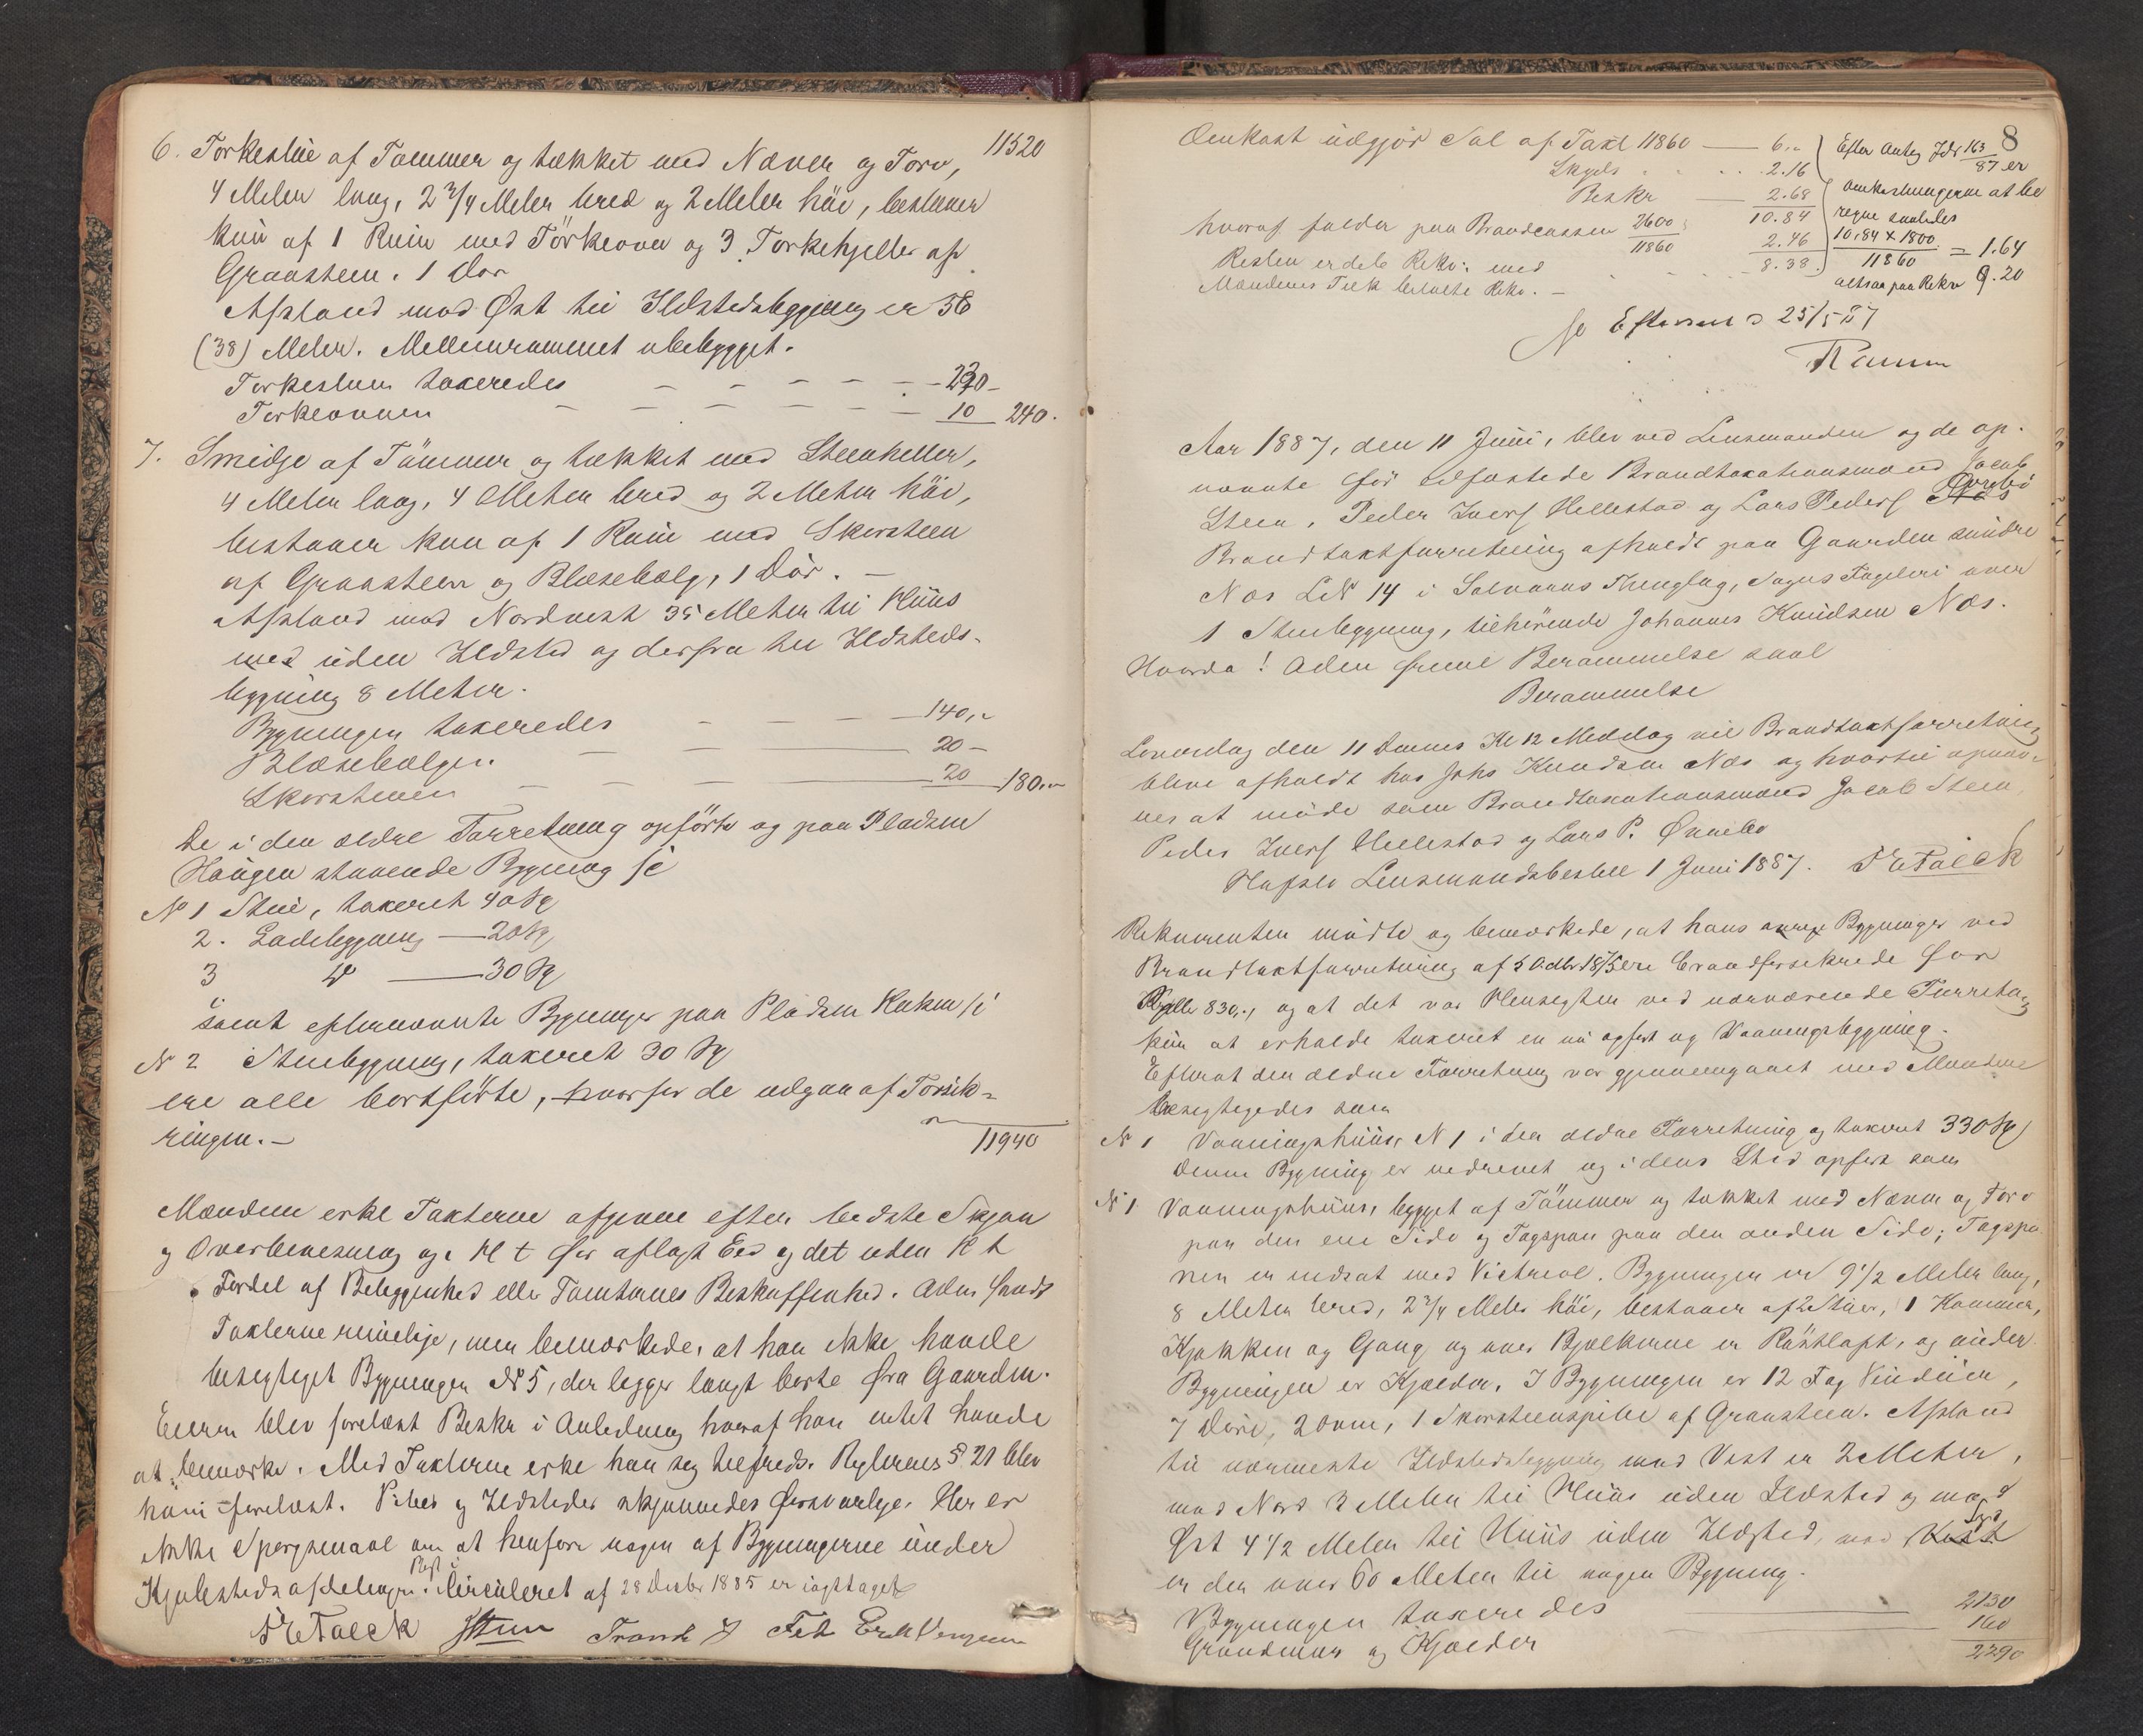 11520
6. Torkestue af Tømmer og tækket med Næver og Torv,
4 Meter lang, 2 3/4 Meter bred og 2 Meter høi, bestaaer
kun af 1 Rum med Törkeovn og 3 Torkehjeller af
Graasteen. 1 Dør
Afstand mod Øst til Ildstedsbygning er 38
(38) Meter. Mellemrummet ubebygget.
Torkestuen taxeredes — — — — — 230 –
Torkeovnen — — — — — 10 240.
7. Smidje af Tömmer og tækket med Steenheller,
4 Meter lang, 4 Meter bred og 2 Meter höi,
bestaaer kun af 1 Rum med Skorsteen
af Graasteen og Blæsebælg, 1 Dör. —
Afstand mod Nordvest 35 Meter til Huus
med uden Ildsted og derfra til Ildsteds-
bygning 8 Meter.
Bygningen taxeredes — — — — 140,"
Blæsebælgen — — — 20 –
Skorstenen — — — 20 180."
De i den ældre Forretning opförte og paa Pladsen
Haugen staaende Bygning je
No 1 Stue, taxeret 40 Sp
2. Ladebygning — 20 Sp
3 do — 30 Sp
samt efternævnte Bygninger paa Pladsen
N 2 Stuebygning, taxeret 30 Sp
ere alle bortförte, hvorfor de udgaa af Forsik-
ringen. —
11940
Mændene erkl Taxterne afgivne efter bedste Skjøn
og Overbeviisning og i H t før aflagt Eed og det uden H t
Fordel af Beliggenhed eller Tomternes Beskaffenhed. Adm. fandt
Taxterne rimelige, men bemærkede, at han ikke havde
besigtiget Bygningen N 5, der ligger langt borte fra Gaarden.
Eieren blev forelæst Beskr i Anledning hvoraf han intet havde
at bemærke. Med Taxterne erkl han sig tilfreds. Reglernes § 21 blev
ham forelæst. Piber og Ildsteder skjønnedes forsvarlige. Her er
ikke Spørgsmaal om at henføre nogen af Bygningerne under
Kjøbstedsafdelingen. Cirkuleret af 28 Decbr 1885 er iagttaget
Falck JSteen Trond J Fet Erik
8
Omkost udgjør Sal af Taxt 11860 — 6."
Skyds . . . . 2.16
Beskr — 2.68
10.84
hvoraf falder paa Brandcassen 2600/11860 2.46
Resten erdele Rekv. med . . . . 8.38
Mændenes betalte Rekv. —
Efter Antg Jdr 163/87 er
Omkostningerne at be
regne saaledes
10.84 x 1800/11860 = 1.64
altsaa paa Rekv 9.20
25/5 87
Aar 1887, den 11 Juni, blev ved Lensmanden og de op-
nævnte før edfæstede Brandtaxationsmænd Jacob
Steen, Peder Iversen Hillestad og Lars Peders Næs Ørrebö
Brandtaxtforretning afholdt paa Gaarden søndre
Næs LN 14 i Solvorns Thinglag, Sogns Fogderi over
1 Stuebygning, tilhörende Johannes Knudsen Næs.
Hvorda! Adm fremt Berammelse saal
Berammelse
Løverdag den 11 Dennes Kl 12 Middag vil Brandtaxtforretning
blive afholdt hos Johs Knudsen Næs og hvortil opnæv-
nes at møde som Brandtaxationsmænd Jacob Steen,
Peder Iverf Hillestad og Lars P. Ørrebö
Hafslo Lensmandsbestill 1 Juni 1887. Falck
Rekvirenten mödte og bemærkede, at hans Bygninger ved
Brandtaxtforretning af 1875 ere brandforsikrede for
830, og at det var Hensigten ved nærværende Forretning
kun at erholde taxeret en ny opført ny Vaaningsbygning.
Efterat den ældre Forretning var gjennemgaaet med Mændene
besigtigedes som
N 1 Vaaningshuus N 1 i den ældre Forretning og taxeret 330 Sp
denne Bygning er nedrevet og i dens Sted opført som
N 1 Vaaningshuus, bygget af Tömmer og tækket med Næver og Torv
paa den ene Side og Tagspon paa den anden Side; Tagspo
nen er indsat med Victriol. Bygningen er 9 1/2 Meter lang,
8 Meter bred, 2 3/4 Meter höi, bestaaer af 2 Stuer, 1 Kammer,
Kjøkken og Gang og over Bjælkerne er Röstloft, og under
Bygningen er Kjælder. I Bygningen er 12 Fag Vinduer,
7 Döre, 2 Ovne, 1 Skorsteenspibe af Graasteen. Afstand
til nærmeste Ildstedsbygning mod Vest er 2 Meter,
mod Nord 2 Meter til Huus uden Ildsted og mod
Øst 4 1/2 Meter til Huus uden Ildsted, mod Vest Syd
er der over 60 Meter til nogen Bygning.
Bygningen taxeredes 2130
Grundmur og Kjælder 160
2290